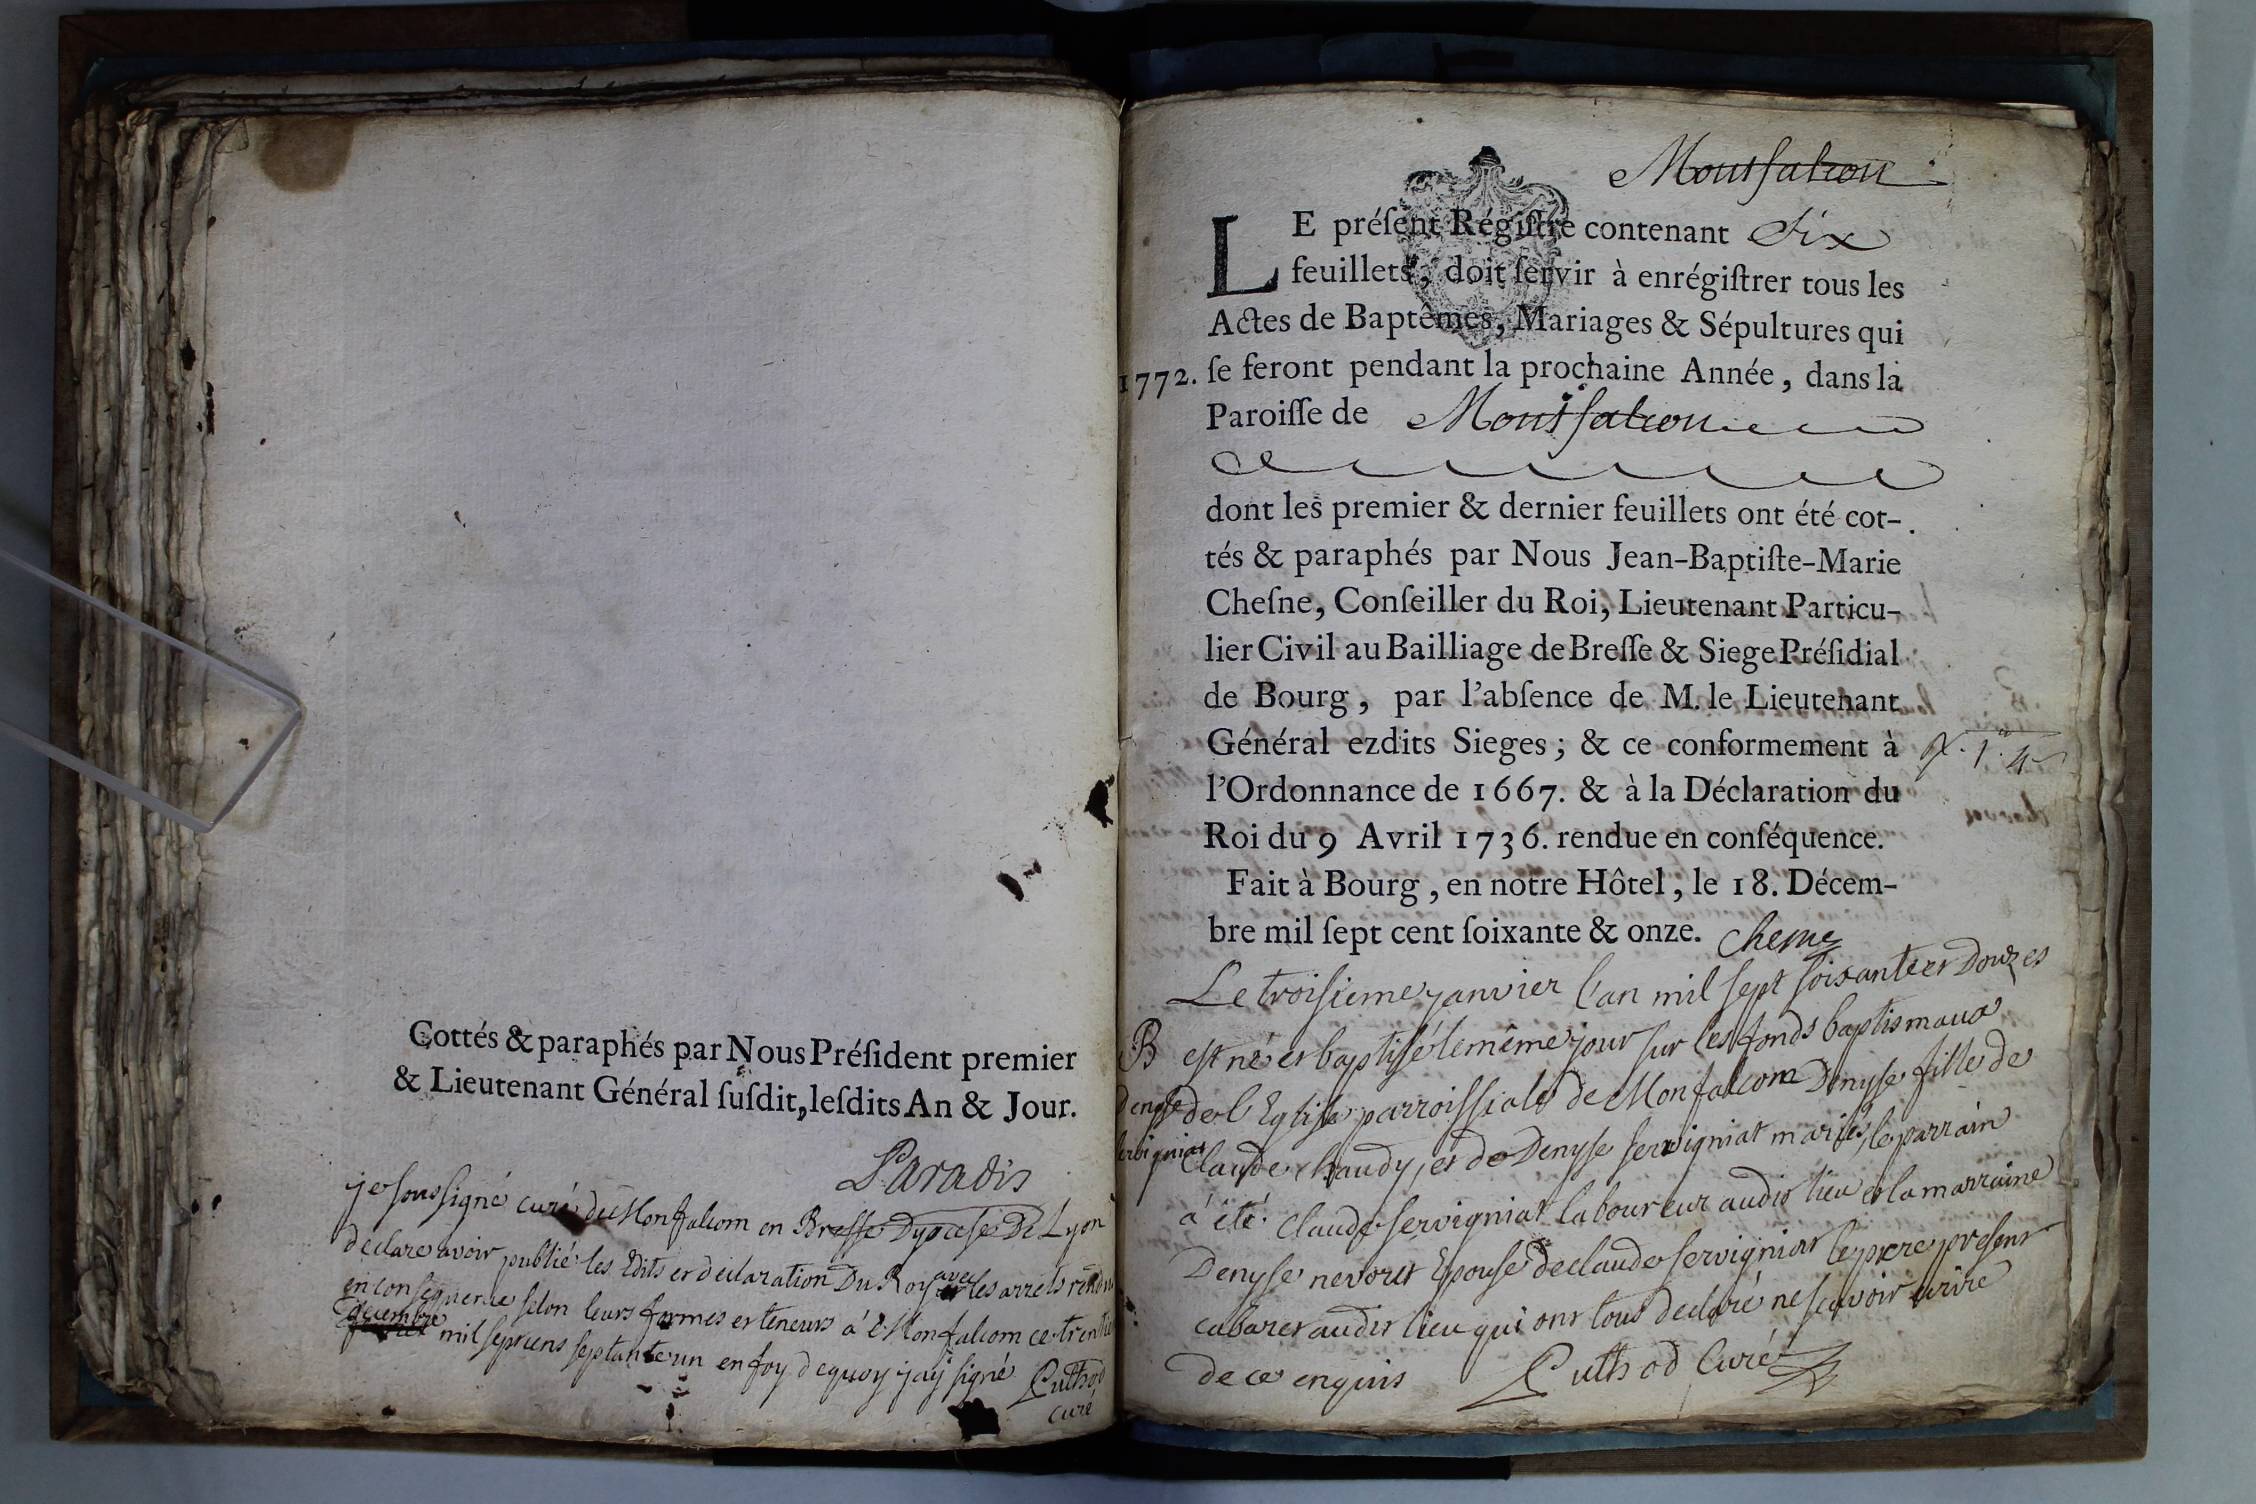 Cottés & paraphés par Nous Préſident premier
& Lieutenant Général ſuſdit, leſdits An & Jour.
Paradis
je soussigné curé de Monfalcom en Bresse Dyocese De Lyon
declare avoir publié les Edits et declaration Du Roy avec les arrets rendu
en consequence selon leurs formes et teneurs à Monfalcom ce trentie
decembre mil sept cens septante un en foy dequoy j'ay signé Cuthod
curé
Montfalcon
LE préſent Régiſtre contenant Six
feuillets, doit ſervir à enrégiſtrer tous les
Actes de Baptêmes, Mariages & Sépultures qui
1772. ſe feront pendant la prochaine Année, dans la
Paroiſſe de Montfalcon
dont les premier & dernier feuillets ont été cot-
tés & paraphés par Nous Jean-Baptiſte-Marie
Cheſne, Conſeiller du Roi, Lieutenant Particu-
lier Civil au Bailliage de Breſſe & Siege Préſidial
de Bourg, par l'abſence de M. le Lieutenant
Général ezdits Sieges; & ce conformement à
l'Ordonnance de 1667. & à la Déclaration du
Roi du 9 Avril 1736. rendue en conſéquence.
Fait à Bourg, en notre Hôtel, le 18. Décem-
bre mil ſept cent ſoixante & onze. Chesne
Le troisieme janvier l'an mil sept soixante et Douzes
B est né et baptisé le même jour sur les fonds baptismaux
Denyse de l'Eglise parroissiale de Monfalcom Denyse fille de
Claude chaudy, et de Denyse servigniat mariés, le parrain
à été Claude servigniat laboureur audit lieu et la marraine
Denyse nevoret Epouse de claude servigniat le pere present
cabaret audit lieu qui ont tous declaré ne scavoir ecrire
de ce enquis Cuthod Curé